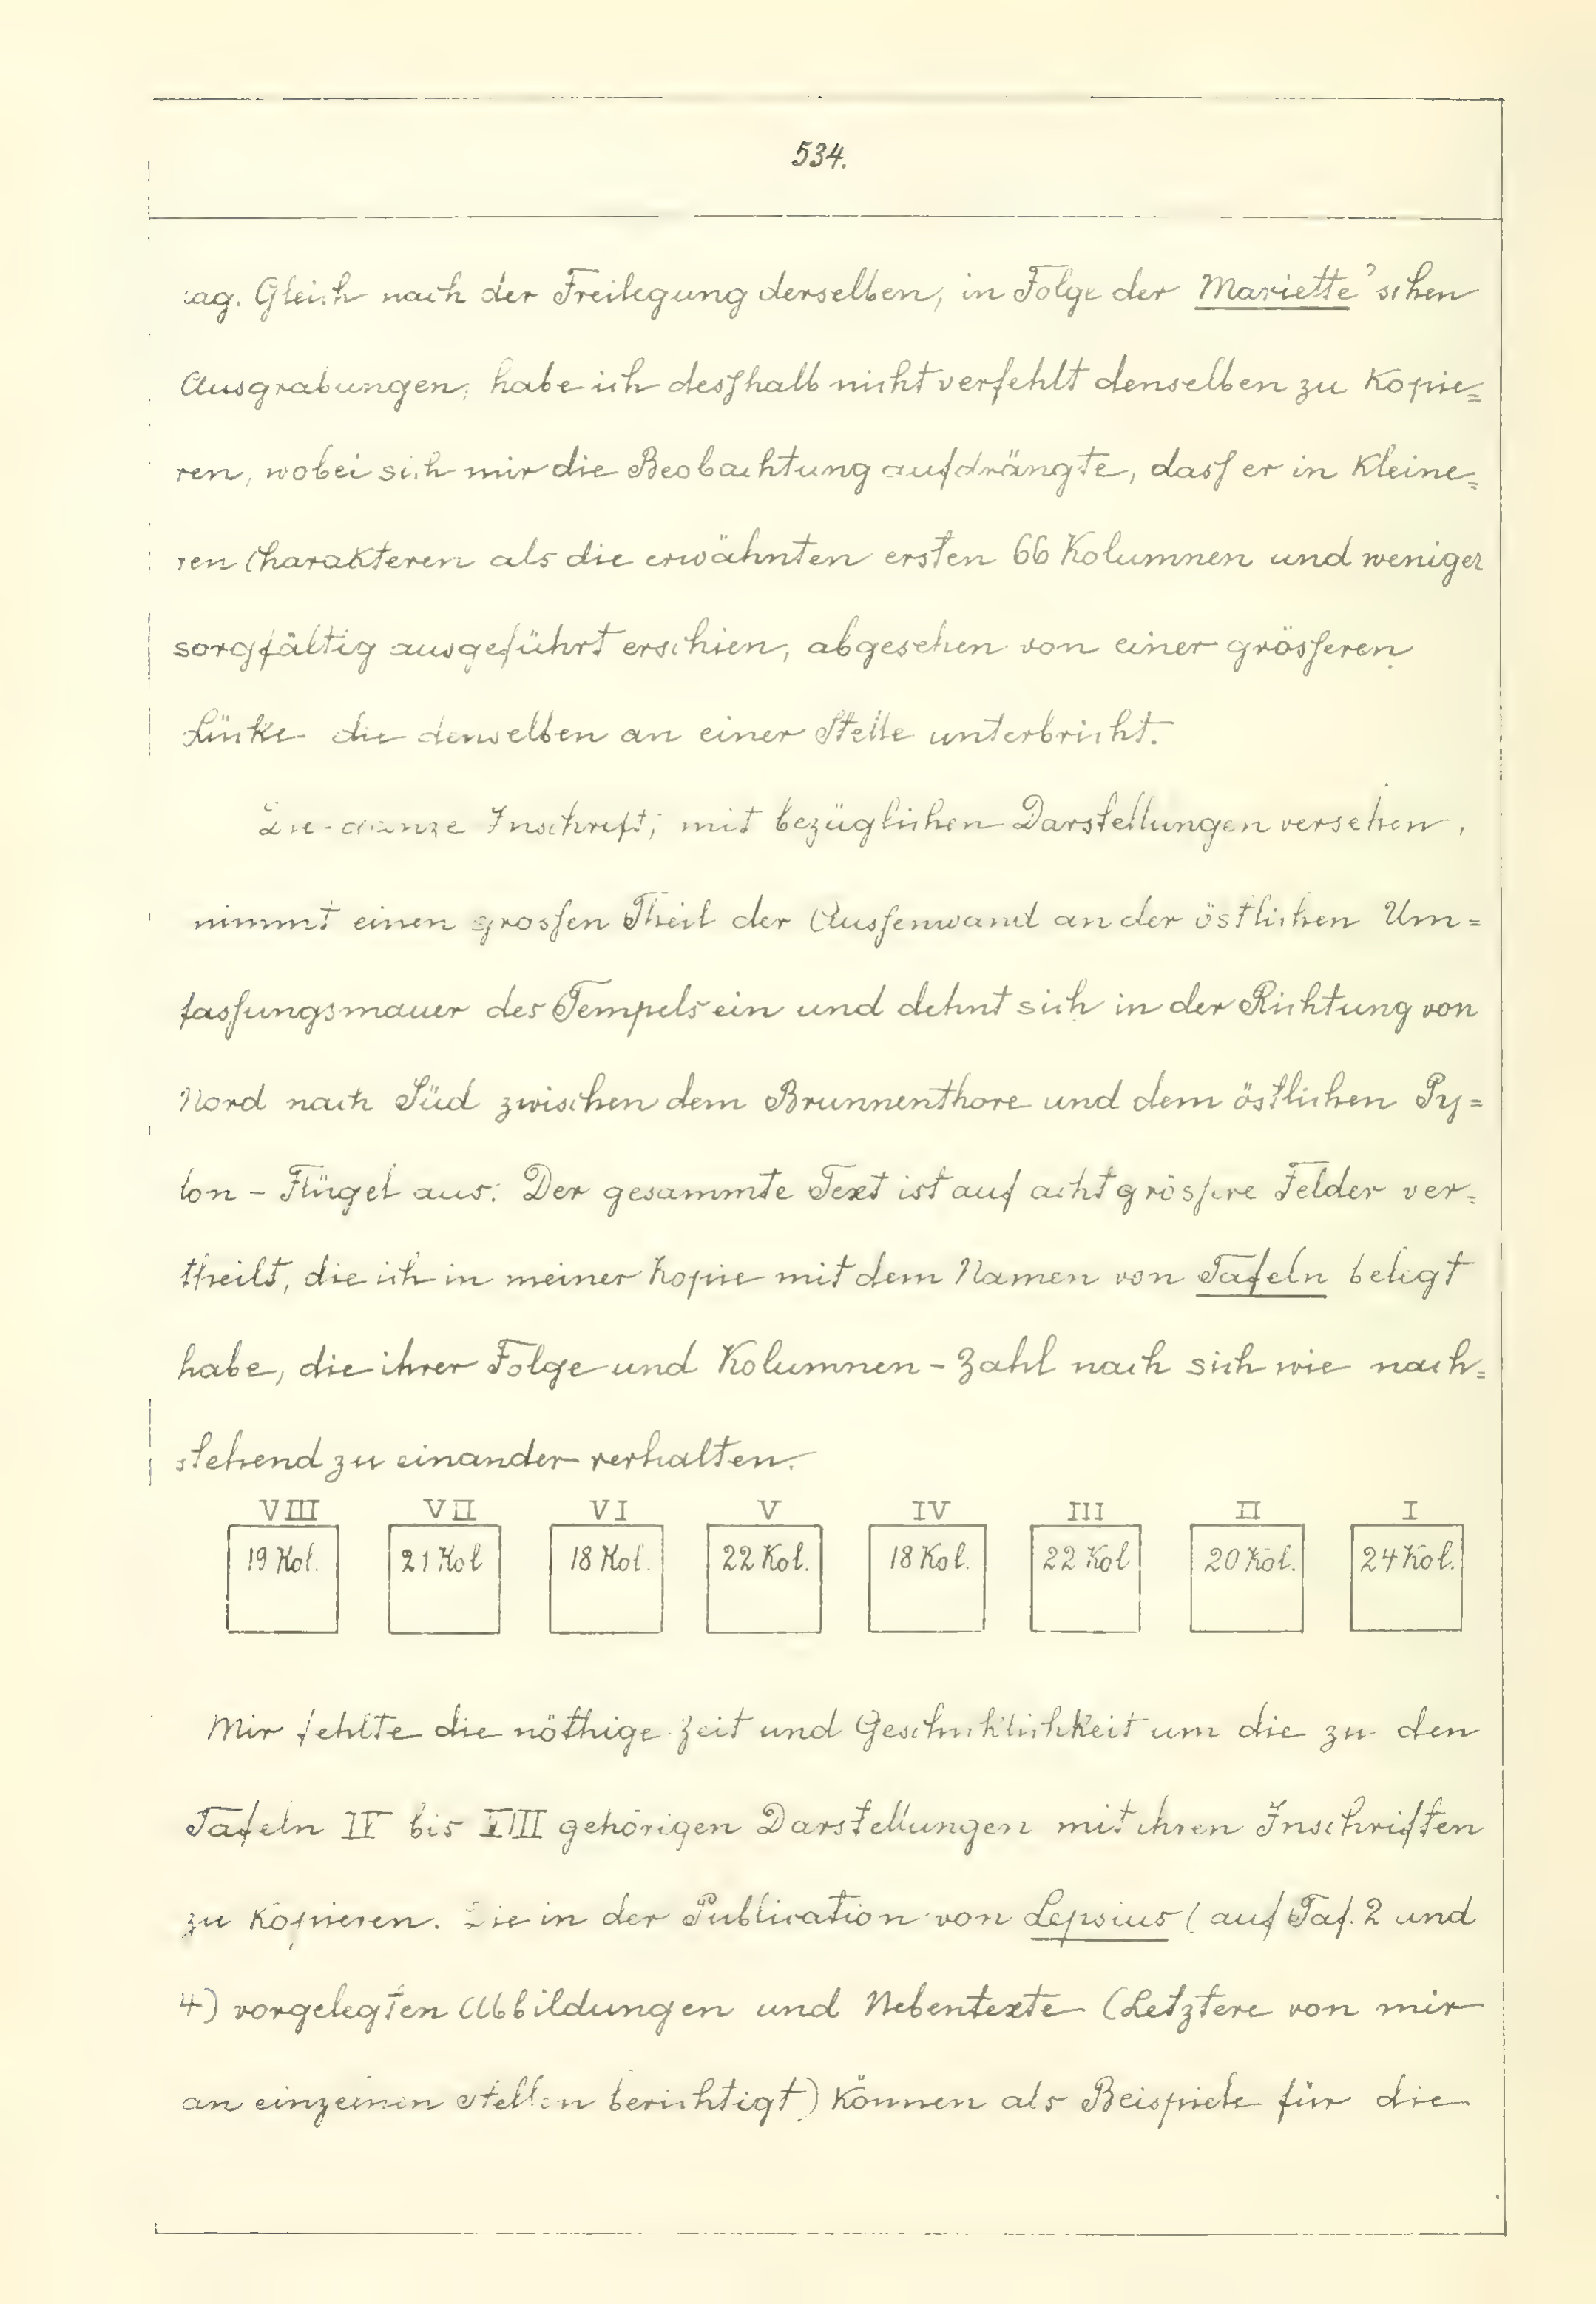 534.
lag. Gleich nach der Freilegung derselben, in Folge der Mariette'schen
Ausgrabungen, habe ich desshalb nicht verfehlt denselben zu kopie=
ren, wobei sich mir die Beobachtung aufdrängte, dass er in kleine=
ren Charakteren als die erwähnten ersten 66 Kolumnen und weniger
sorgfältig ausgeführt erschien, abgesehen von einer grösseren
Lücke die denselben an einer Stelle unterbricht.
Die ganze Inschrift, mit bezüglichen Darstellungen versehen,
nimmt einen grossen Theil der Aussenwand an der östlichen Um=
fassungsmauer des Tempels ein und dehnt sich in der Richtung von
Nord nach Süd zwischen dem Brunnenthore und dem östlichen Py=
lon-Flügel aus. Der gesammte Text ist auf acht grössere Felder ver=
theilt, die ich in meiner Kopie mit dem Namen von Tafeln belegt
habe, die ihrer Folge und Kolumnen-Zahl nach sich wie nach=
stehend zu einander verhalten.
VIII VII VI V IV III II I
19 Kol. 21 Kol 18 Kol. 22 Kol. 18 Kol. 22 Kol 20 Kol. 24 Kol.
Mir fehlte die nöthige Zeit und Geschicklichkeit um die zu den
Tafeln IV bis VIII gehörigen Darstellungen mit ihren Inschriften
zu kopieren. Die in der Publication von Lepsius (auf Taf. 2 und
4) vorgelegten Abbildungen und Nebentexte (Letztere von mir
an einzelnen Stellen berichtigt) können als Beispiele für die